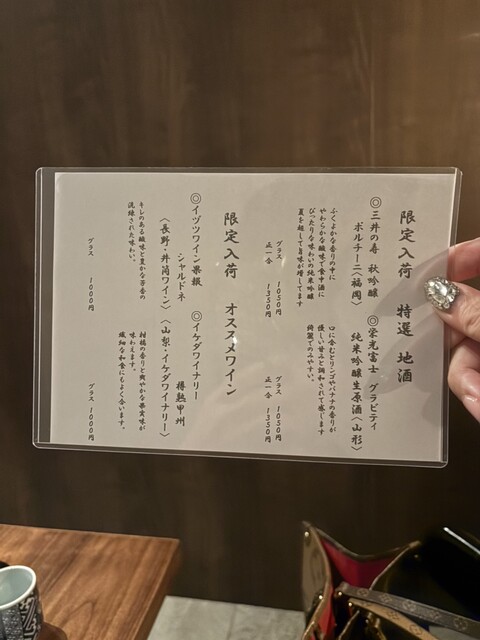 限定入荷 特選 地酒
◎三井の寿 秋吟醸
ポルチーニ〈福岡〉
ふくよかな香りの中に
やわらかな酸味で食中酒に
ぴったりな味わいの純米吟醸
夏を超して旨味が増してます
グラス 1050円
正一合 1350円
◎栄光冨士 グラビティ
純米吟醸生原酒〈山形〉
口に含むとリンゴやバナナの香りが
優しい甘みと調和されて感じます
綺麗でのみやすい。
グラス 1050円
正一合 1350円
限定入荷 オススメワイン
◎イヅツワイン果報
シャルドネ
〈長野・井筒ワイン〉
キレのある酸味と豊かな芳香の
洗練された味わい。
グラス 1000円
◎イケダワイナリー
樽熟甲州
〈山梨・イケダワイナリー〉
柑橘の香りと爽やかな果実味が
味わえます。
繊細な和食にもよく合います。
グラス 1000円